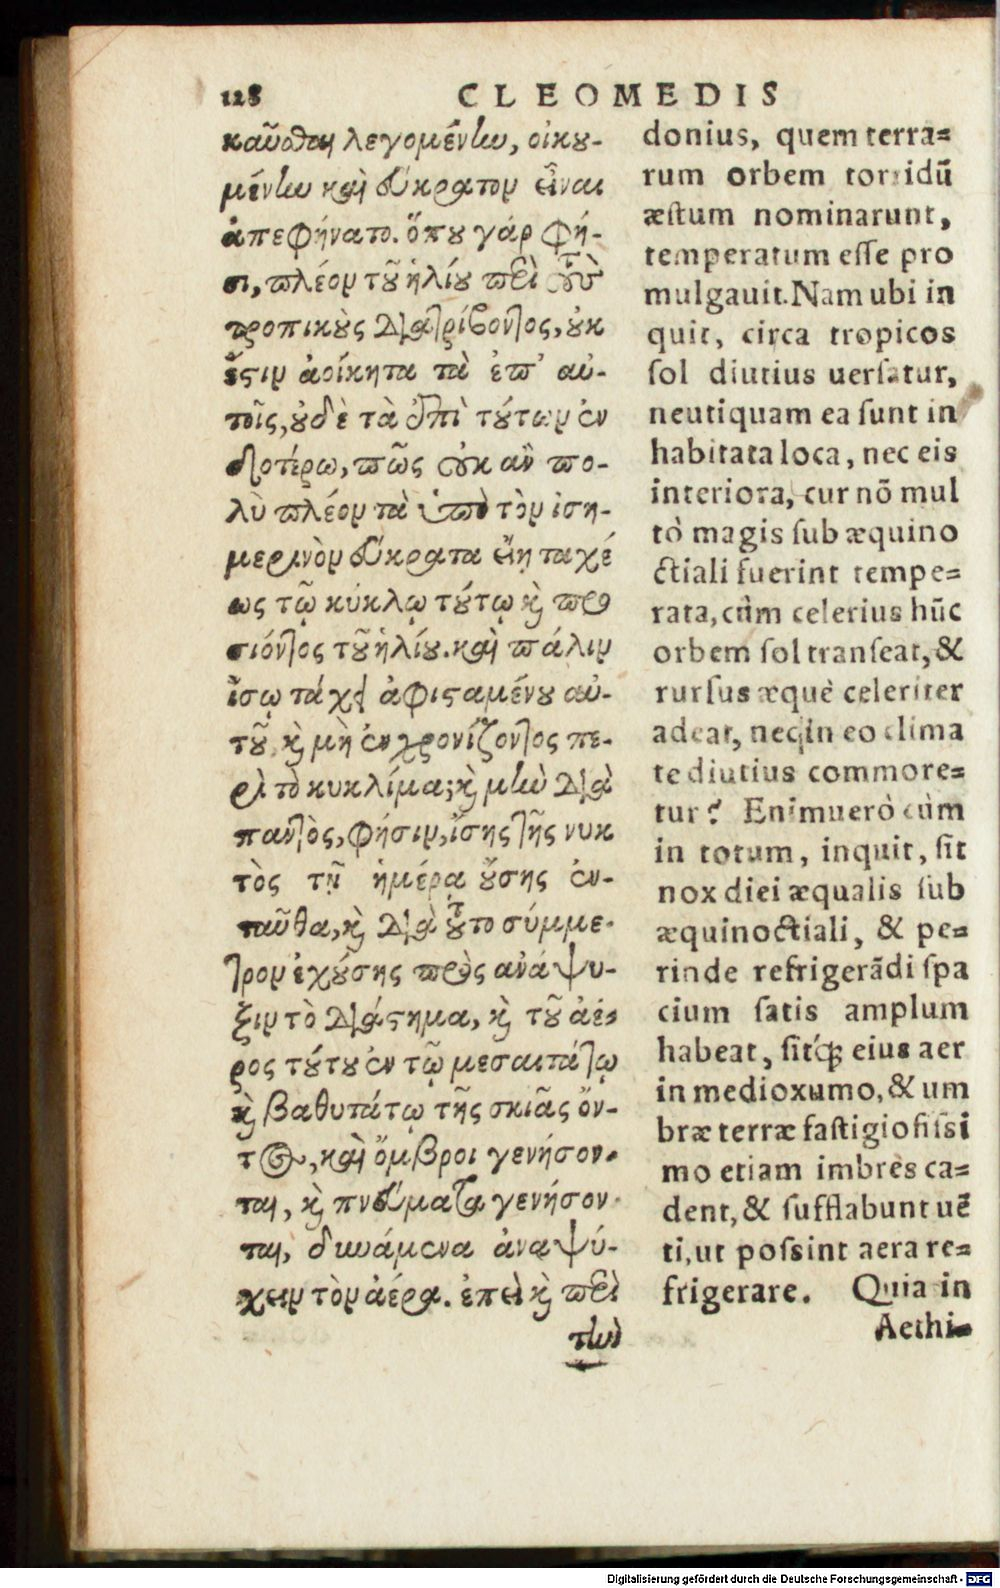 128 CLEOMEDIS
καῦσθαι λεγομένην, οἰκου-
μένην καὶ εὔκρατον εἶναι
ἀπεφήνατο. ὅπου γάρ φη-
σι, πλέον τοῦ ἡλίου περὶ τοὺς
τροπικοὺς διατρίβοντος, οὐκ
ἔστιν ἀοίκητα τὰ ἐπ' αὐ-
τοῖς, οὐδὲ τὰ ἐπὶ τούτων ἐν
δοτέρω, πῶς οὐκ ἂν πο-
λὺ πλέον τὰ ὑπὸ τὸν ἰση-
μερινὸν εὔκρατα εἴη ταχέ
ως τῷ κύκλῳ τούτῳ καὶ προ
σιόντος τοῦ ἡλίου. καὶ πάλιν
ἴσῳ τάχει ἀφισταμένου αὐ-
τοῦ, καὶ μὴ ἐγχρονίζοντος πε-
ρὶ τὸ κυκλίμα; καὶ μὴν διὰ
παντὸς, φήσιν, ἴσης τῆς νυκ
τὸς τῇ ἡμέρᾳ οὔσης ἐν-
ταῦθα, καὶ διὰ τοῦτο σύμμε-
τρον ἐχούσης πρὸς ἀνάψυ-
ξιν τὸ διάστημα, καὶ τοῦ ἀέ-
ρος τούτου ἐν τῷ μεσαιτάτῳ
καὶ βαθυτάτῳ τῆς σκιᾶς ὄν-
τος, καὶ ὄμβροι γενήσον-
ται, καὶ πνεύματα γενήσον
ται, δυνάμενα ἀναψύ-
χειν τὸν ἀέρα. ἐπεὶ καὶ περὶ
τὴν
donius, quem terra=
rum orbem torridũ
æstum nominarunt,
temperatum esse pro
mulgauit. Nam ubi in
quit, circa tropicos
sol diutius uersatur,
neutiquam ea sunt in
habitata loca, nec eis
interiora, cur nõ mul
tò magis sub æquino
ctiali fuerint tempe=
rata, cùm celerius hũc
orbem sol transeat, &
rursus æquè celeriter
adeat, neq; in eo clima
te diutius commore=
tur? Enimuerò cùm
in totum, inquit, sit
nox diei æqualis sub
æquinoctiali, & pe=
rinde refrigerãdi spa
cium satis amplum
habeat, sitq́; eius aer
in medioxumo, & um
bræ terræ fastigiosissi
mo etiam imbres ca=
dent, & sufflabunt uẽ
ti, ut possint aera re=
frigerare. Quia in
Aethi=
Digitalisierung gefördert durch die Deutsche Forschungsgemeinschaft - DFG